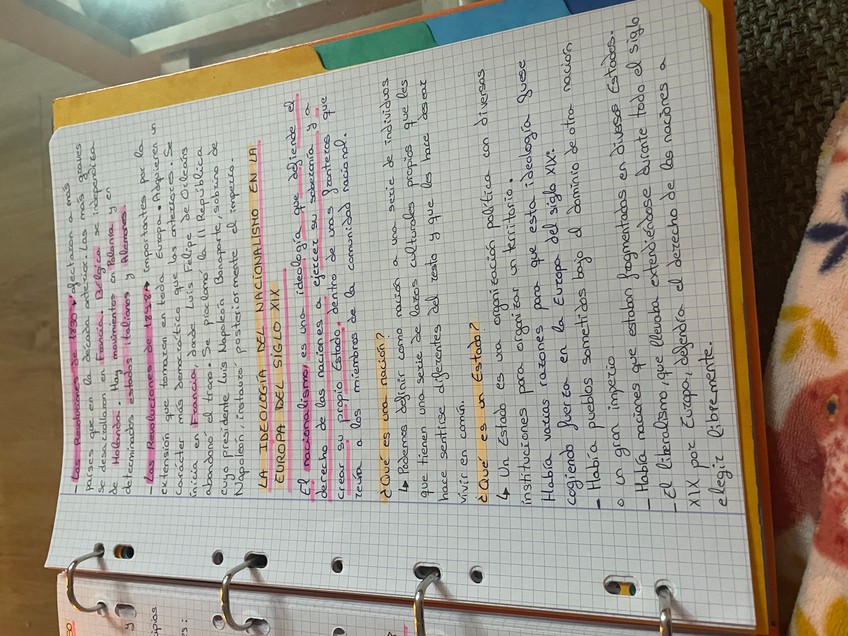 - Las Revoluciones de 1830: afectaron a más
países que en la década anterior. Las más graves
se desarrollaron en Francia. Bélgica se independiza
de Holanda. Hay movimientos en Polonia y en
determinados estados italianos y Alemanes.
- Las Revoluciones de 1848: importantes por la
extensión que tomaron en toda Europa. Adquieren un
carácter más democrático que las anteriores. Se
inicia en Francia donde Luis Felipe de Orleans
abandonó el trono. Se proclamó la II República
cuyo presidente Luis Napoleón Bonaparte, sobrino de
Napoleón instauró posteriormente el imperio.
LA IDEOLOGIA DEL NACIONALISMO EN LA
EUROPA DEL SIGLO XIX
El nacionalismo, es una ideología que defiende el
derecho de las naciones a ejercer su soberanía y a
crear su propio Estado, dentro de unas fronteras que
reúna a los miembros de la comunidad nacional.
¿Qué es una nación?
↳ Podemos definir como nación a una serie de individuos
que tienen una serie de lazos culturales propios que les
hace sentirse diferentes del resto y que les hace desear
vivir en común.
¿Qué es un Estado?
↳ Un Estado es una organización política con diversas
instituciones para organizar un territorio.
Había varias razones para que esta ideología fuese
cogiendo fuerza en la Europa del siglo XIX:
- Había pueblos sometidos bajo el dominio de otra nación
o un gran imperio
- Había naciones que estaban fragmentadas en diversos Estados.
- El liberalismo, que llevaba extendiéndose durante todo el siglo
XIX por Europa, defendía el derecho de las naciones a
elegir libremente.